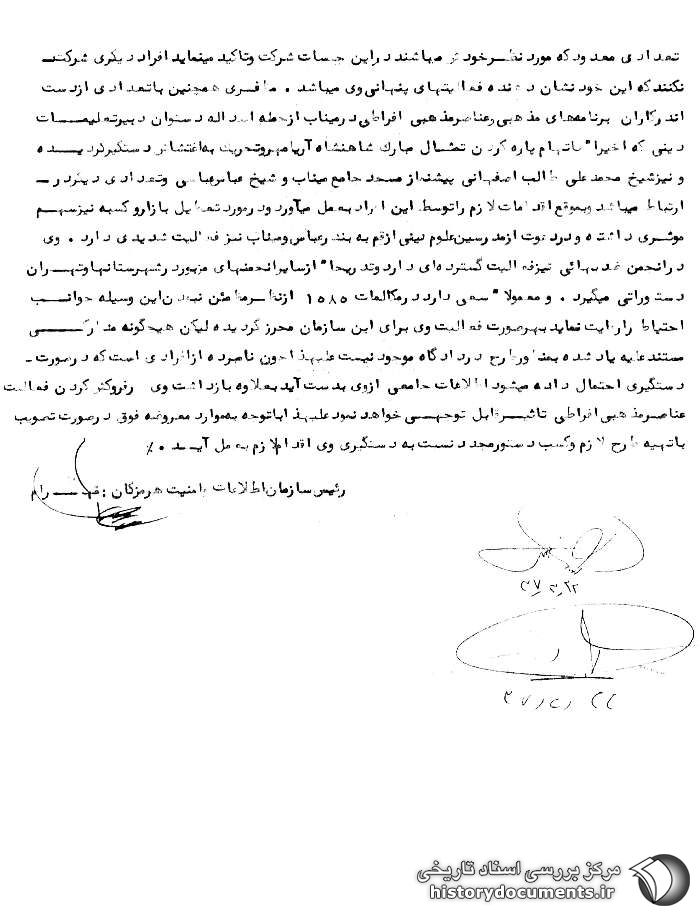 تعدادی معدود که مورد نظر خود او میباشند در این جلسات شرکت و تاکید مینماید افراد دیگری شرکت
نکنند که این خود نشان دهنده فعالیتهای پنهانی وی میباشد . مسافری همچنین با تعدادی از دست
اندرکاران برنامه‌های مذهبی و عناصر مذهبی افراطی در میناب از جمله اسداله دستوان دبیر تعلیمات
دینی که اخیرا" باتهام پاره کردن تمثال مبارک شاهنشاه آریامهر و تحریک به اغتشاش دستگیر گردیده
و نیز شیخ محمد علی طالب اصفهانی پیشنماز مسجد جامع میناب و شیخ عباس عباسی و تعدادی دیگر در
ارتباط میباشد و بموقع اقدامات لازم را توسط این افراد بعمل میآورد و در مورد تعطیل بازار و کسبه نیز سهم
موثری داشته و در دعوت از مدرسین علوم دینی از قم به بندرعباس و میناب نیز فعالیت شدیدی دارد . وی
در انجمن ضد بهائی نیز فعالیت گسترده‌ای دارد و تدریجا" از سایر انجمنهای مزبور در شهرستانها و تهران
دستوراتی میگیرد . و معمولا" سعی دارد در مکالمات ۱۵۸۵ از نظر مطمئن نبودن این وسیله جوانب
احتیاط را رعایت نماید بهر صورت فعالیت وی برای این سازمان محرز گردیده لیکن هیچگونه مدارکی
مستند علیه یاد شده بمنظور طرح در دادگاه موجود نیست علیهذا چون نامبرده از افرادی است که در صورت
دستگیری احتمال داده میشود اطلاعات جامعی از وی بدست آید بعلاوه بازداشت وی در فروکش کردن فعالیت
عناصر مذهبی افراطی تاثیر قابل توجهی خواهد نمود علیهذا با توجه به موارد معروضه فوق در صورت تصویب
با تهیه طرح لازم و کسب دستور مجدد نسبت به دستگیری وی اقدام لازم بعمل آید . ٪
رئیس سازمان اطلاعات و امنیت هرمزگان :
۳۷/۲/۲۲
۲۷/۲/۲۲
مرکز بررسی اسناد تاریخی
historydocuments.ir